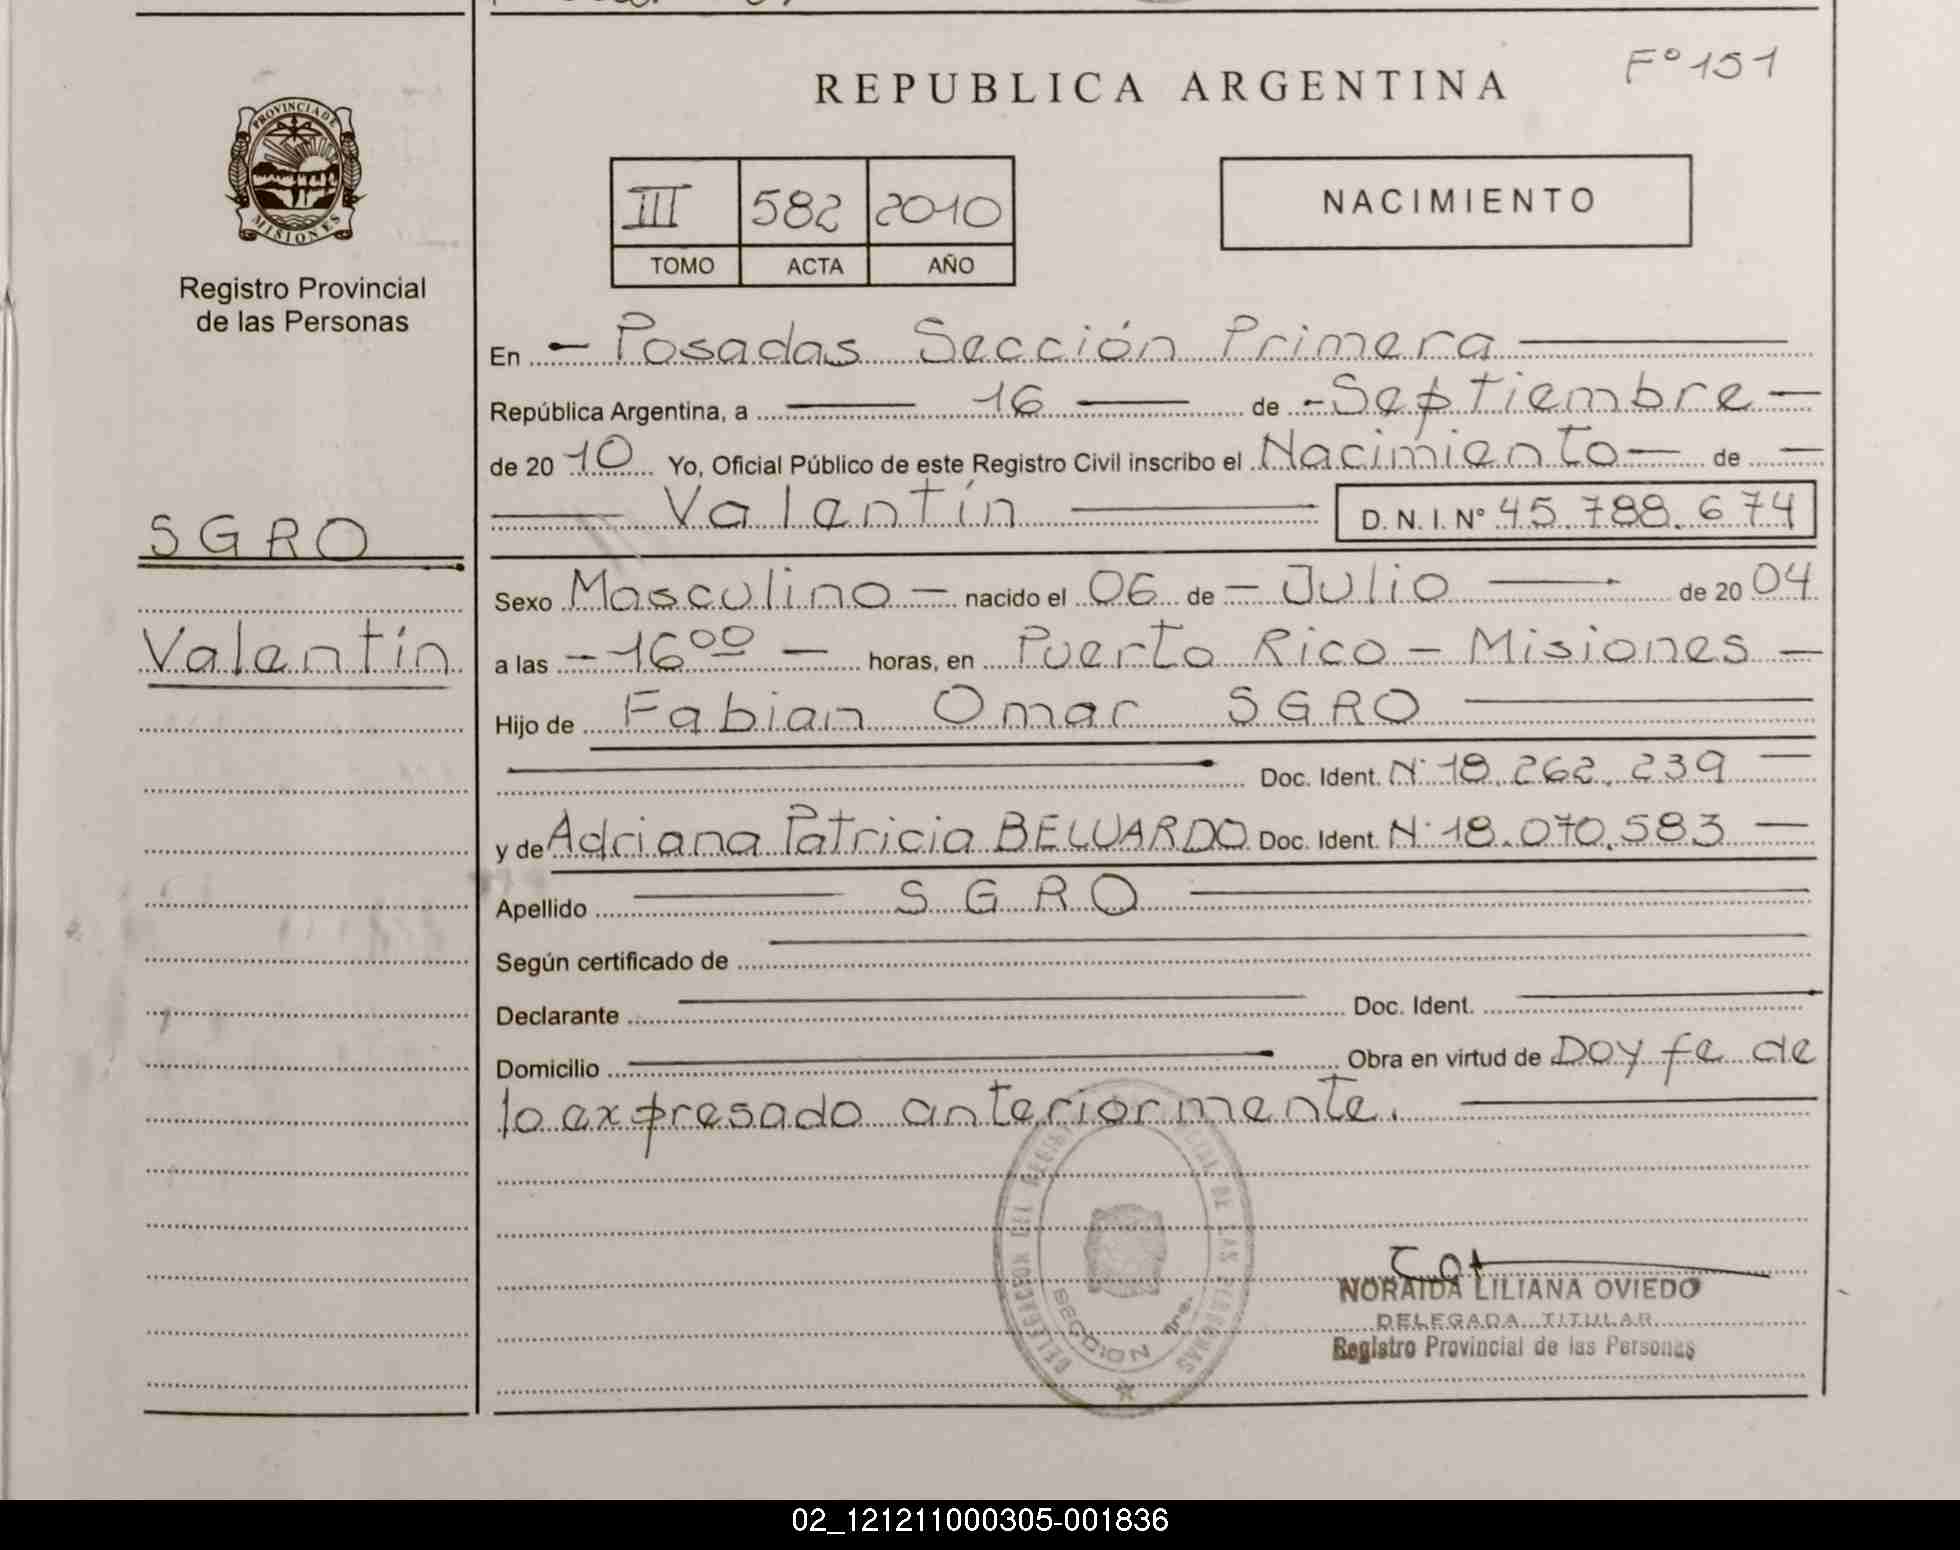 Fº 151
REPUBLICA ARGENTINA
PROVINCIA DE
MISIONES
Registro Provincial
de las Personas
III 582 2010
TOMO ACTA AÑO
NACIMIENTO
En - Posadas Sección Primera
República Argentina, a 16 de - Septiembre -
de 20 10 Yo, Oficial Público de este Registro Civil inscribo el Nacimiento - de -
Valentín D. N. I. Nº 45.788.674
SGRO
Valentín
Sexo Masculino - nacido el 06 de - Julio de 20 04
a las - 16 00 - horas, en Puerto Rico - Misiones -
Hijo de Fabian Omar SGRO
Doc. Ident. Nº 18.262.239
y de Adriana Patricia BELUARDO Doc. Ident. Nº 18.070.583
Apellido SGRO
Según certificado de
Declarante Doc. Ident.
Domicilio Obra en virtud de Doy fe de
lo expresado anteriormente.
DELEGACION DEL DE LAS PERSONAS
SECCION 1ra.
NORAIDA LILIANA OVIEDO
DELEGADA TITULAR
Registro Provincial de las Personas
02_121211000305-001836